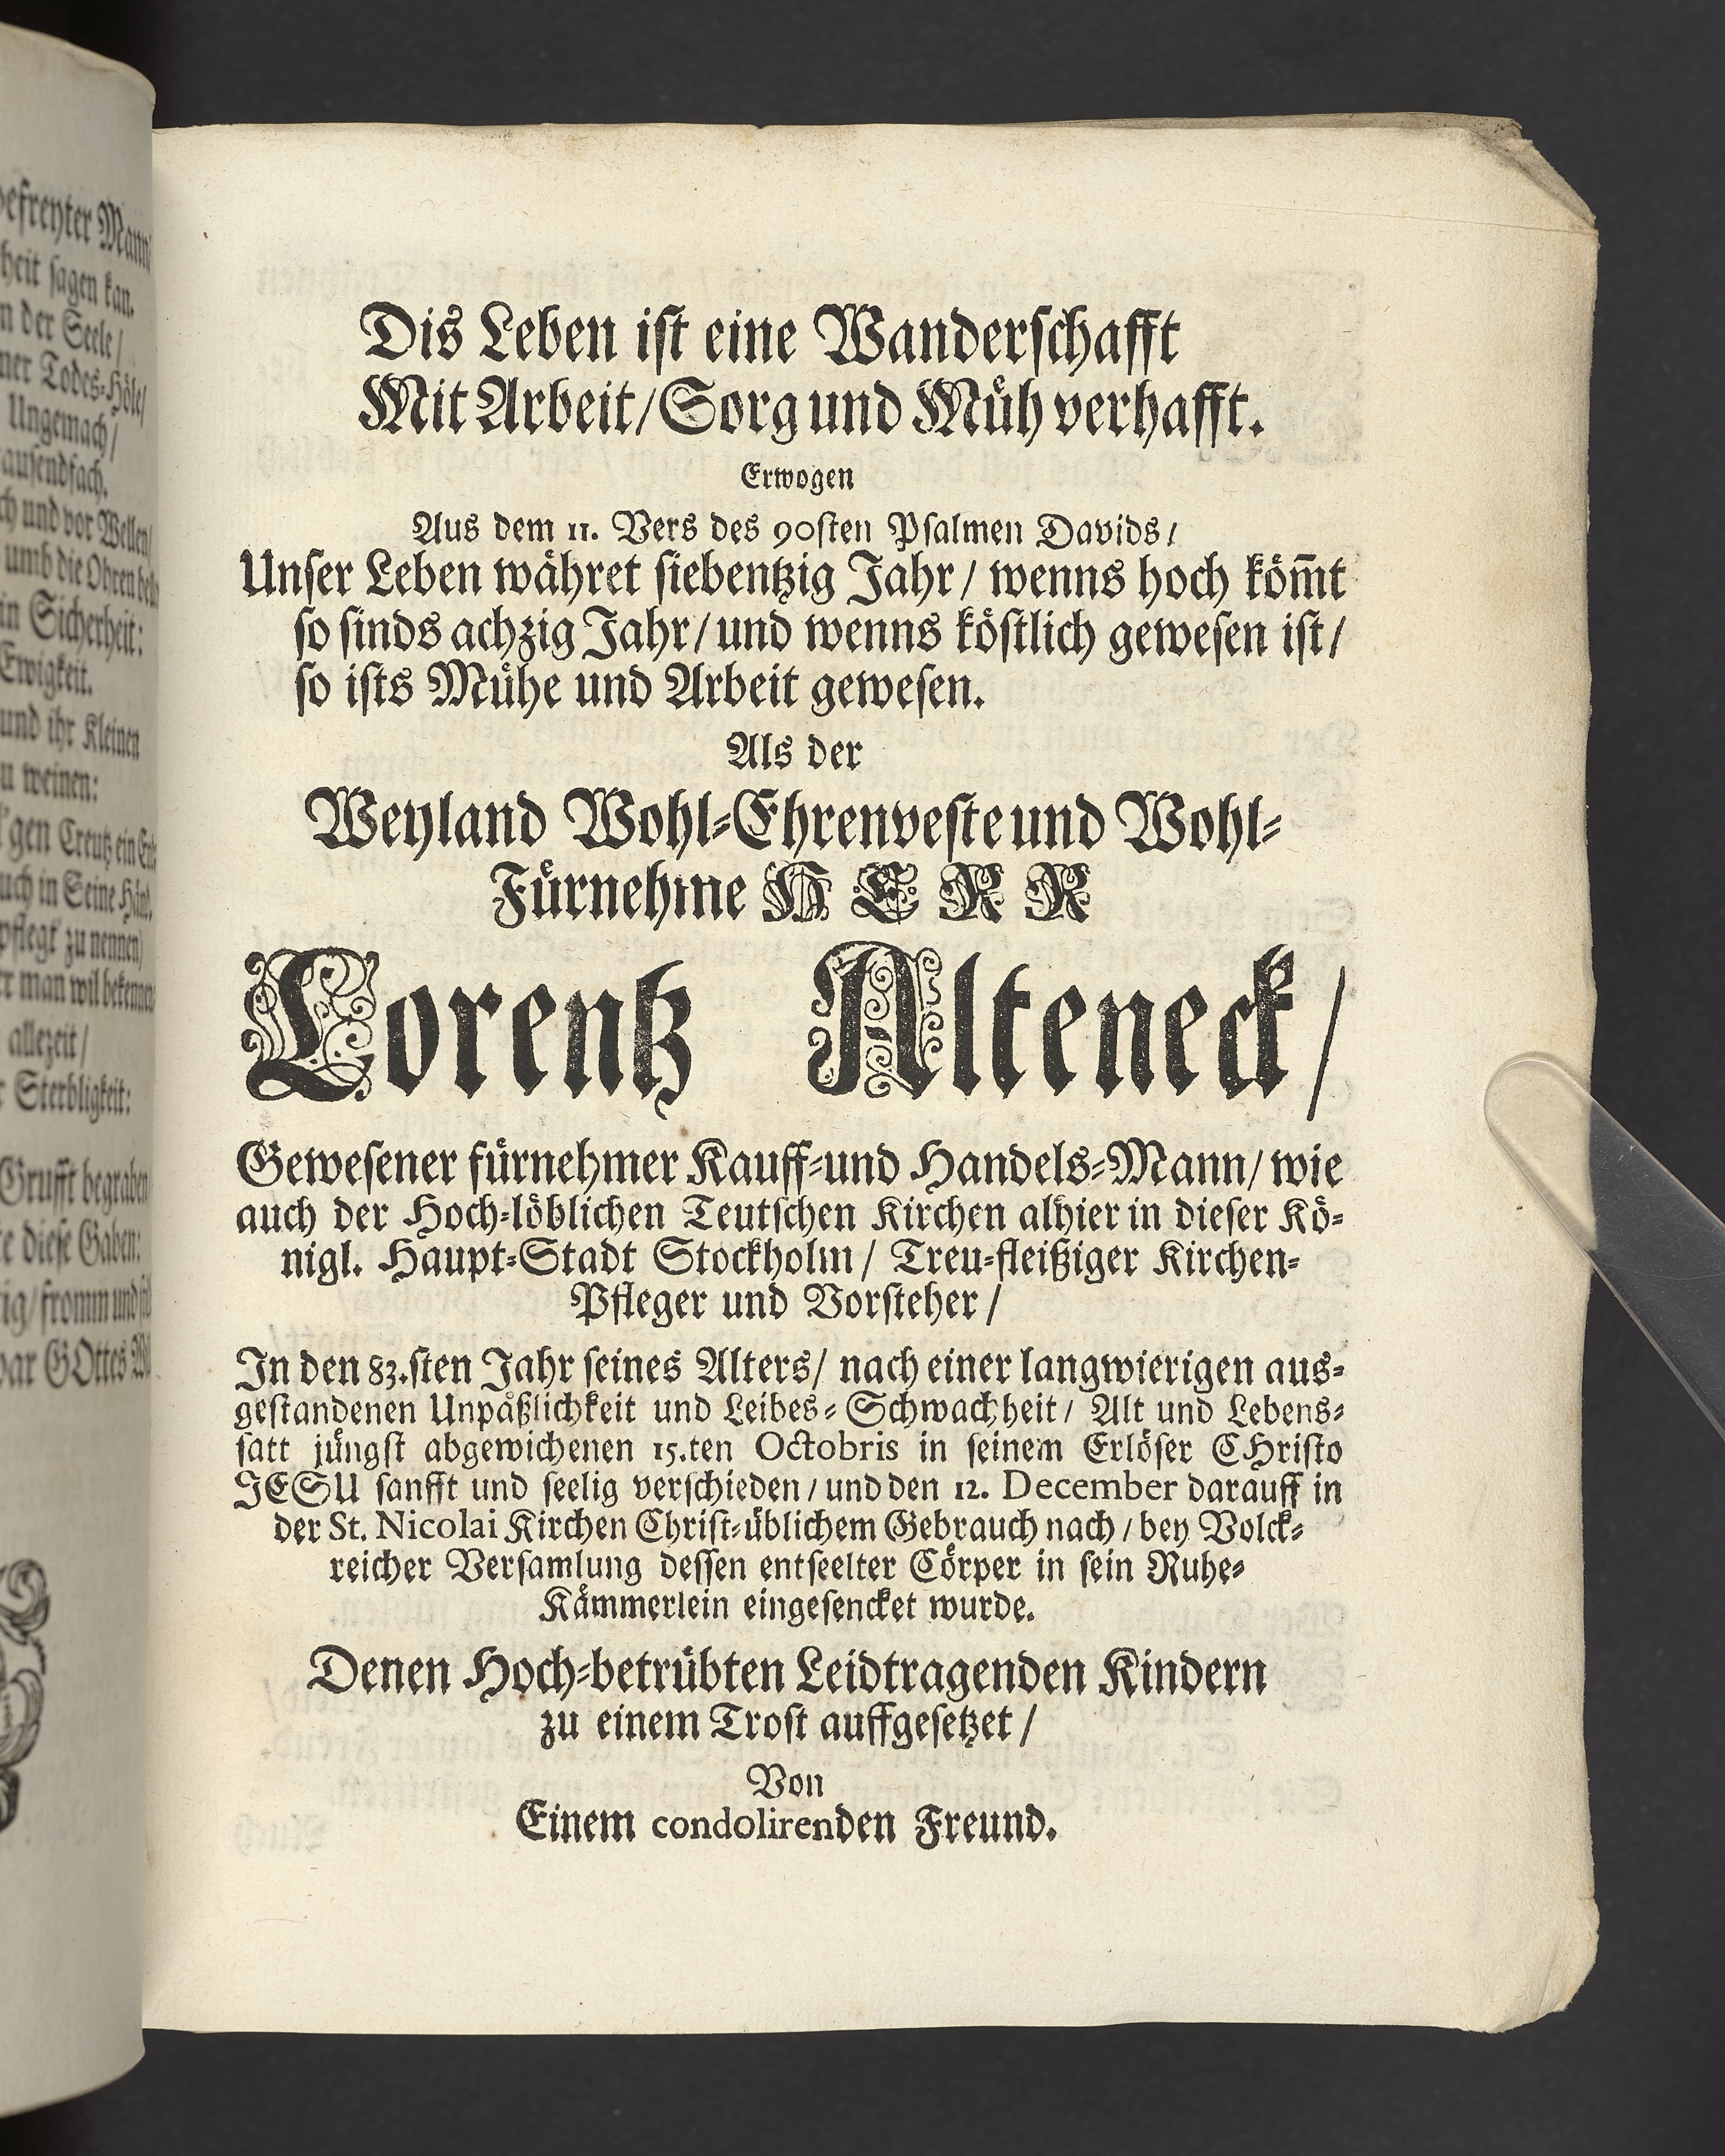 efreyter Mann
heit sagen kan.
n der Seele/
ner Todes-Höle/
Ungemach/
ausendfach.
ch und vor Wellen/
umb die Ohren
in Sicherheit:
Ewigkeit.
und ihr Kleinen
u weinen:
gen Creutz ein
uch in Seine Händ.
pflegt zu nennen)
man wil bekennen
allezeit/
Sterbligkeit:
Grufft begraben
e diese Gaben:
ig/fromm und
ar GOttes
Dis Leben ist eine Wanderschafft
Mit Arbeit/Sorg und Müh verhafft.
Erwogen
Aus dem 11. Vers des 90sten Psalmen Davids/
Unser Leben währet siebentzig Jahr/ wenns hoch köm̃t
so sinds achzig Jahr/und wenns köstlich gewesen ist/
so ists Mühe und Arbeit gewesen.
Als der
Weyland Wohl-Ehrenveste und Wohl-
Fürnehme HERR
Lorentz Alteneck/
Gewesener fürnehmer Kauff-und Handels-Mann/ wie
auch der Hoch-löblichen Teutschen Kirchen alhier in dieser Kö-
nigl. Haupt-Stadt Stockholm/ Treu-fleißiger Kirchen-
Pfleger und Vorsteher/
In den 83.sten Jahr seines Alters/ nach einer langwierigen aus-
gestandenen Unpäßlichkeit und Leibes-Schwachheit/ Alt und Lebens-
satt jüngst abgewichenen 15.ten Octobris in seinem Erlöser CHristo
JESU sanfft und seelig verschieden/ und den 12. December darauff in
der St. Nicolai Kirchen Christ-üblichem Gebrauch nach/ bey Volck-
reicher Versamlung dessen entseelter Cörper in sein Ruhe-
Kämmerlein eingesencket wurde.
Denen Hoch-betrübten Leidtragenden Kindern
zu einem Trost auffgesetzet/
Von
Einem condolirenden Freund.